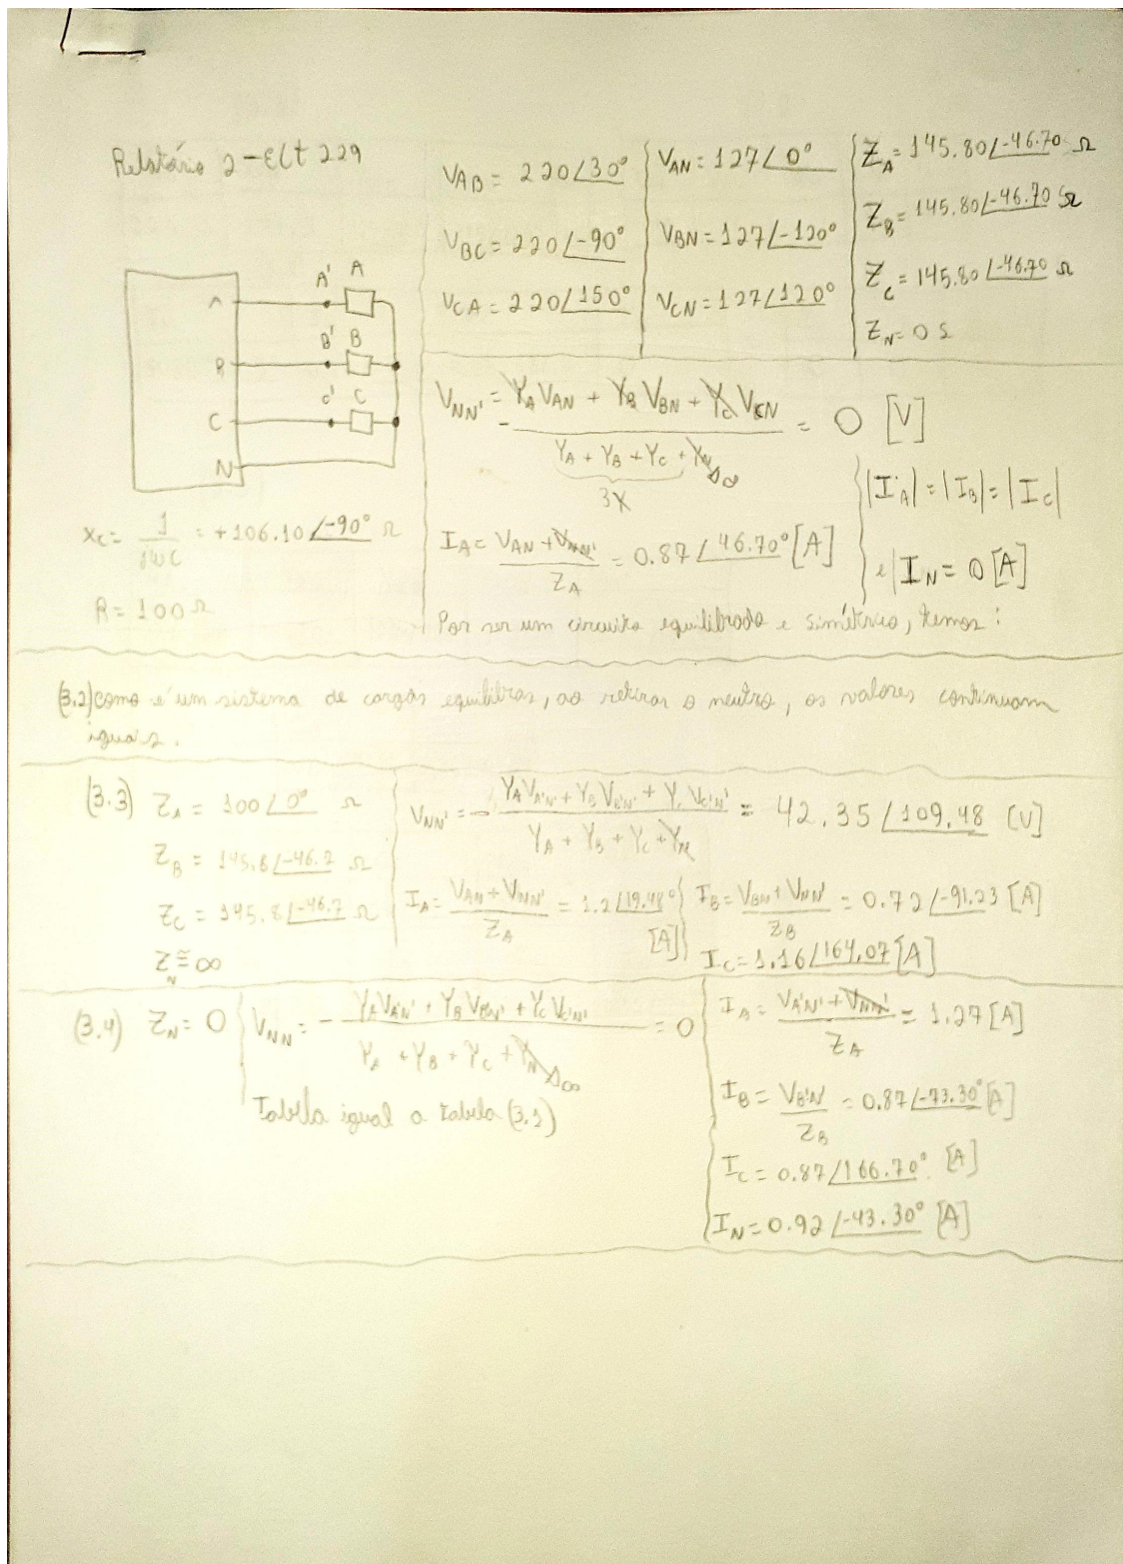 Relatório 2 - ELT 229
V_AB = 220∠30°
V_BC = 220∠-90°
V_CA = 220∠150°
V_AN = 127∠0°
V_BN = 127∠-120°
V_CN = 127∠120°
Z_A = 145.80∠-46.70 Ω
Z_B = 145.80∠-46.70 Ω
Z_C = 145.80∠-46.70 Ω
Z_N = 0 Ω
A A' A
B B' B
C C' C
N
X_C = 1/jωC = +106.10∠-90° Ω
R = 100 Ω
V_NN' = - (Y_A V_AN + Y_B V_BN + Y_C V_CN) / (Y_A + Y_B + Y_C + Y_N) = 0 [V]
3Y
∞
I_A = (V_AN + V_NN') / Z_A = 0.87∠46.70° [A]
|I_A| = |I_B| = |I_C|
e | I_N = 0 [A]
Por ser um circuito equilibrado e simétrico, temos:
(3.2) Como é um sistema de cargas equilibras, ao retirar o neutro, os valores continuam
iguais.
(3.3) Z_A = 100∠0° Ω
Z_B = 145.8∠-46.7 Ω
Z_C = 145.8∠-46.7 Ω
Z_N ≅ ∞
V_NN' = - (Y_A V_A'N' + Y_B V_B'N' + Y_C V_C'N') / (Y_A + Y_B + Y_C + Y_N) = 42.35∠109.48 [V]
I_A = (V_AN + V_NN') / Z_A = 1.2∠19.48° [A]
I_B = (V_BN + V_NN') / Z_B = 0.72∠-91.23 [A]
I_C = 1.16∠164.07 [A]
(3.4) Z_N = 0
V_NN = - (Y_A V_A'N' + Y_B V_B'N' + Y_C V_C'N') / (Y_A + Y_B + Y_C + Y_N) = 0
∞
Tabela igual a tabela (3.1)
I_A = (V_A'N' + V_NN') / Z_A = 1.27 [A]
I_B = V_B'N' / Z_B = 0.87∠-73.30° [A]
I_C = 0.87∠166.70° [A]
I_N = 0.92∠-43.30° [A]